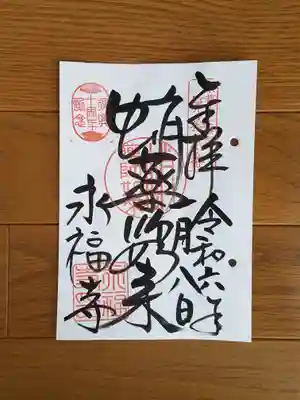 奉拝 令和六年
月八日
蛸薬師如来
永福寺